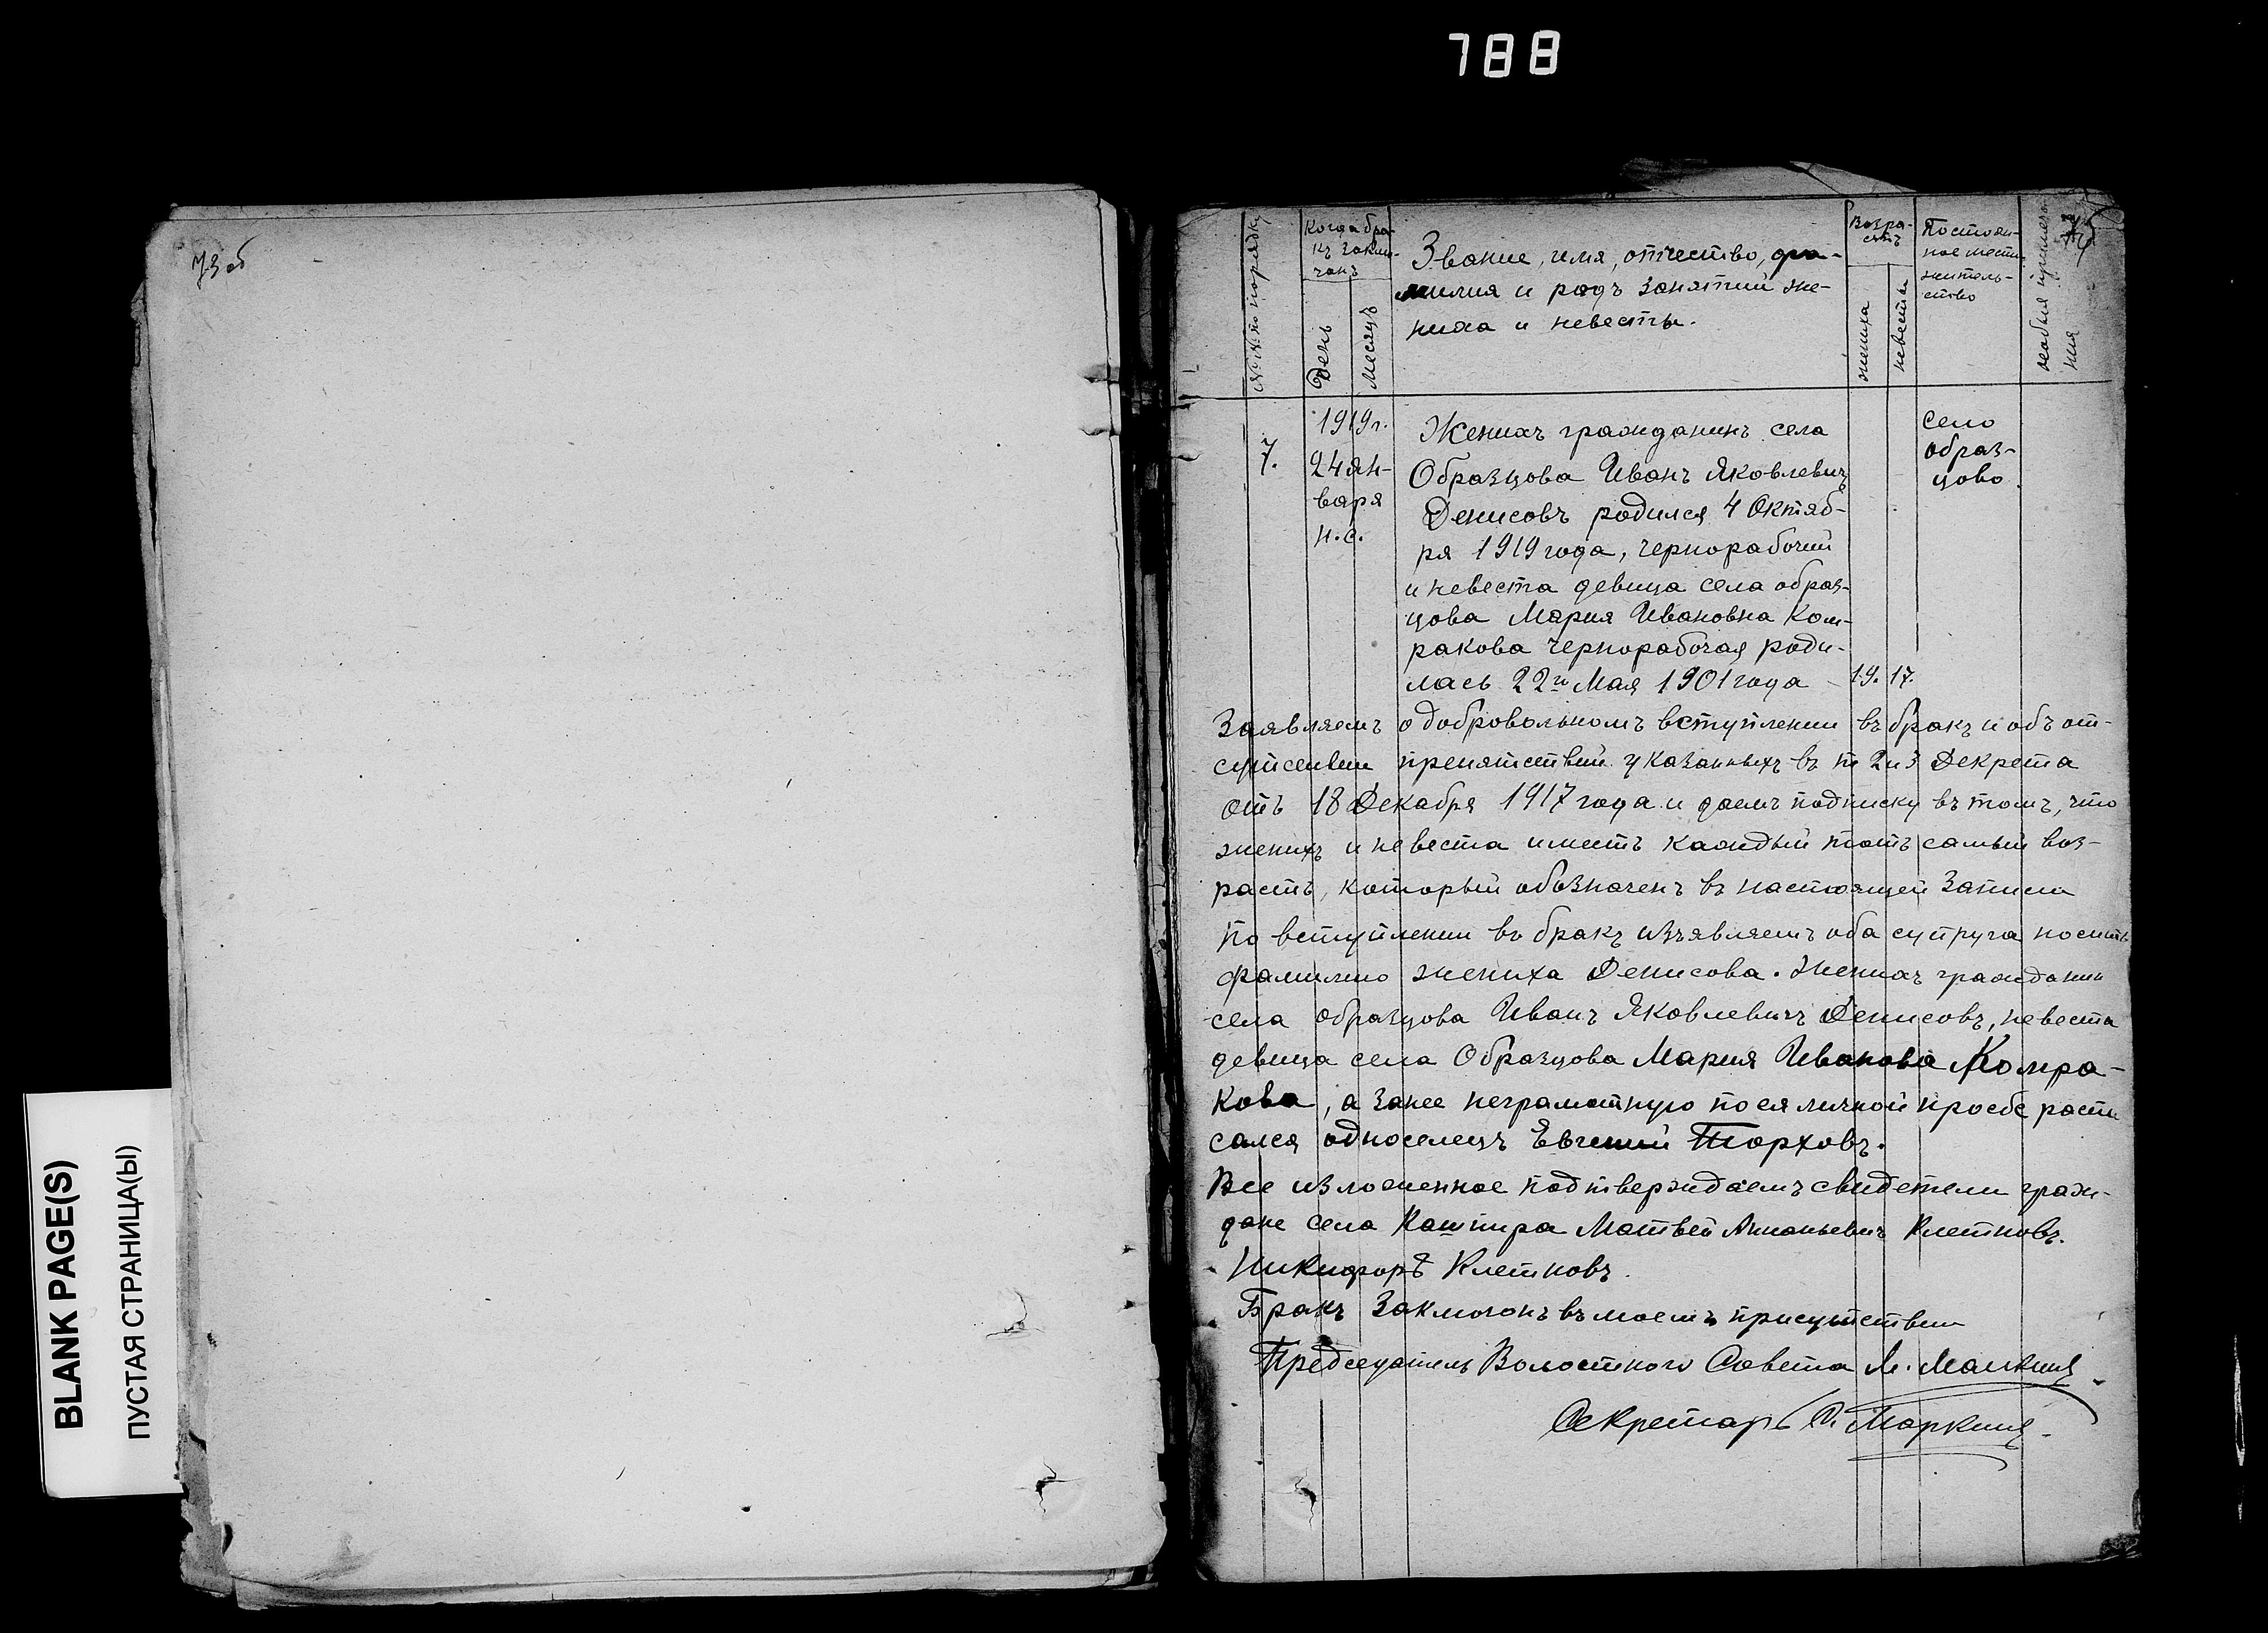 788
73 об
BLANK PAGE(S)
ПУСТАЯ СТРАНИЦА(Ы)
№№ по порядку
Когда бра-
къ заклю-
чонъ
День
Месяцъ
Звание, имя, отчество, фа-
милия и родъ занятий же-
ниха и невесты.
Возра-
стъ
жениха
невесты
Постоян-
ное место
житель-
ство
особыя примеча-
ния
7.
1919г.
24 Ян-
варя
н.с.
Женихъ гражданинъ села
Образцова Иванъ Яковлевичъ
Денисовъ родился 4 Октяб-
ря 1919 года, чернорабочий
и невеста девица села образ-
цова Мария Ивановна Ком-
ракова чернорабочая роди-
лась 22го Мая 1901 года
19. 17.
село
образ-
цово.
Заявляемъ о добровольномъ вступлении въ бракъ и объ от-
сутсвии препятствий указанныхъ въ п 2 и 3 Декрета
отъ 18 Декабря 1917 года и даемъ подписку въ томъ, что
женихъ и невеста иметъ каждый тотъ самый воз-
растъ, который обозначенъ въ настоящей записи
По вступлении въ бракъ изъявляемъ оба супруга носить
фамилию жениха Денисова. Женихъ гражданин
села образцова Иванъ Яковлевичъ Денисовъ, невеста
девица села Образцова Мария Иванова Комра-
кова, а за нее неграмотную по ея личной просбе распи
сался односелецъ Евгений Торховъ.
Все изложенное подтверждаемъ свидетели граж-
дане села Кашпира Матвей Ананьевич Клетновъ.
Никифоръ Клетновъ.
Бракъ Заключонъ въ моемъ присутствии
Председатель Волостного Совета М.
Секретарь Маркинъ